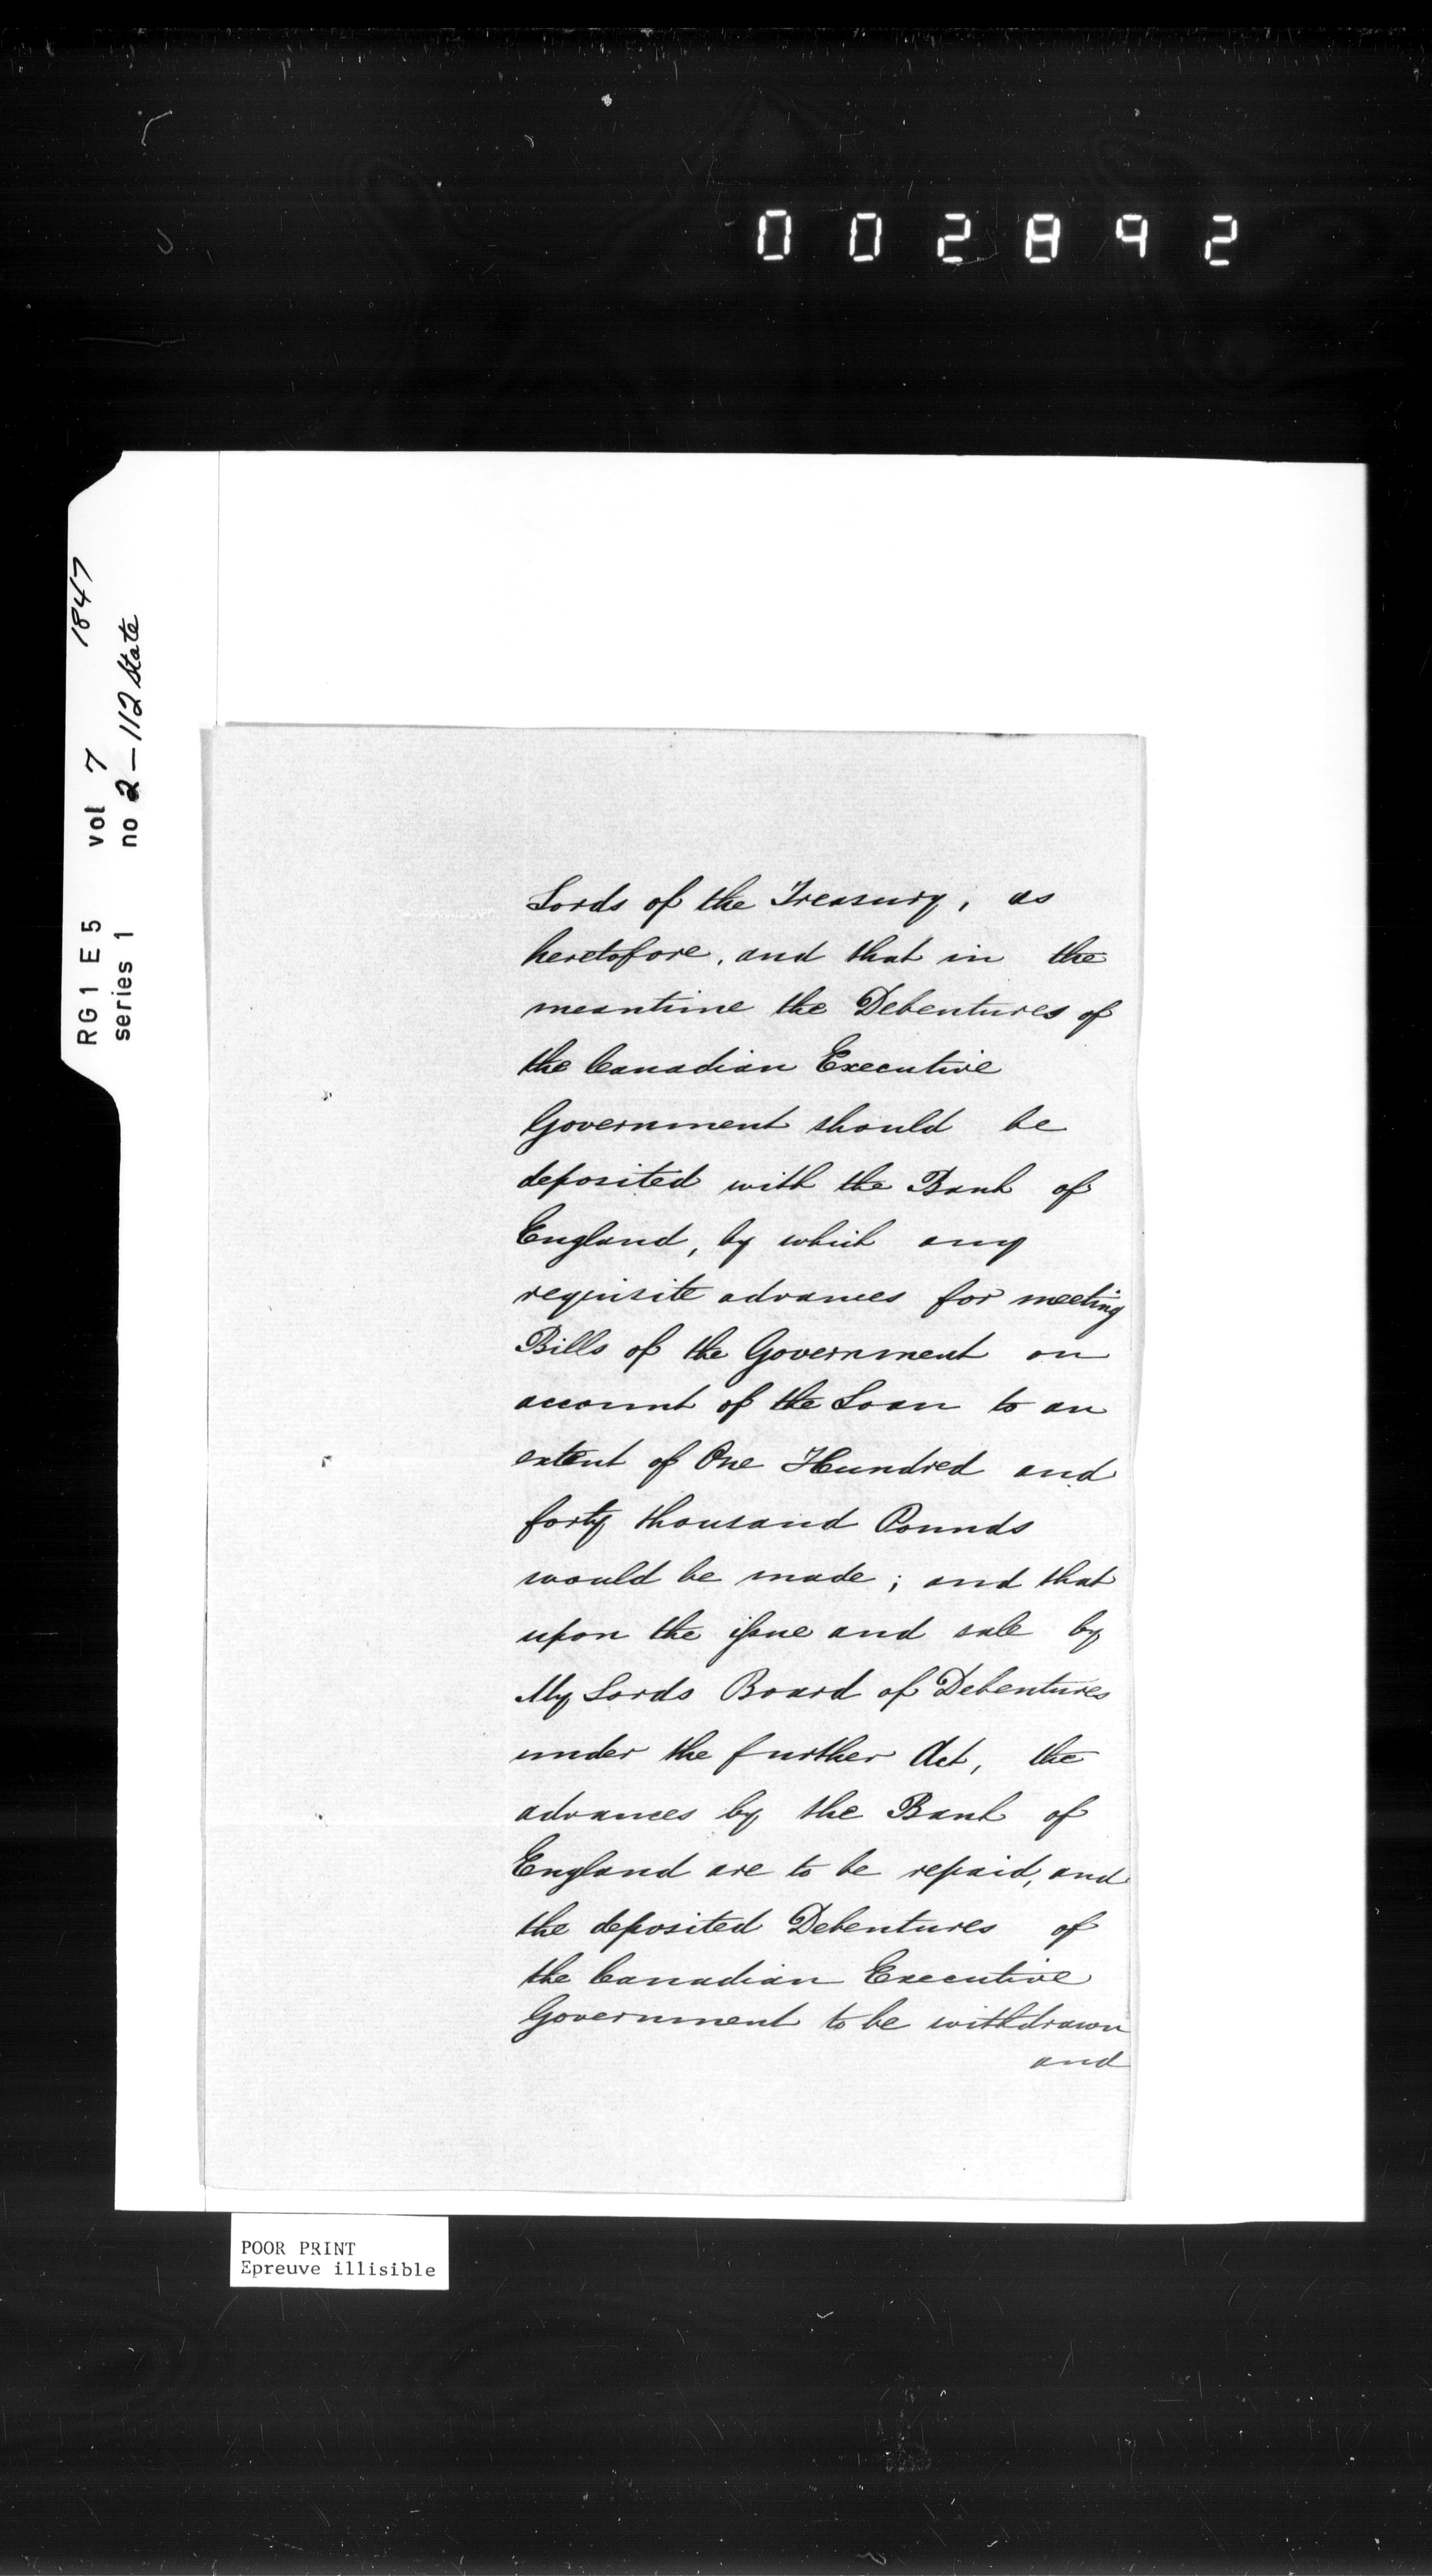 002892
RG1 E5 vol 7 1847
series 1 no 2-112 State
Lords of the Treasury, as
heretofore, and that in the
meantime the Debentures of
the Canadian Executive
Government should be
deposited with the Bank of
England, by which any
requisite advances for meeting
Bills of the Government on
account of the Loan to an
extent of One Hundred and
forty thousand Pounds
would be made; and that
upon the issue and sale by
My Lords Board of Debentures
under the further Act, the
advances by the Bank of
England are to be repaid, and
the deposited Debentures of
the Canadian Executive
Government to be withdrawn
and
POOR PRINT
Epreuve illisible